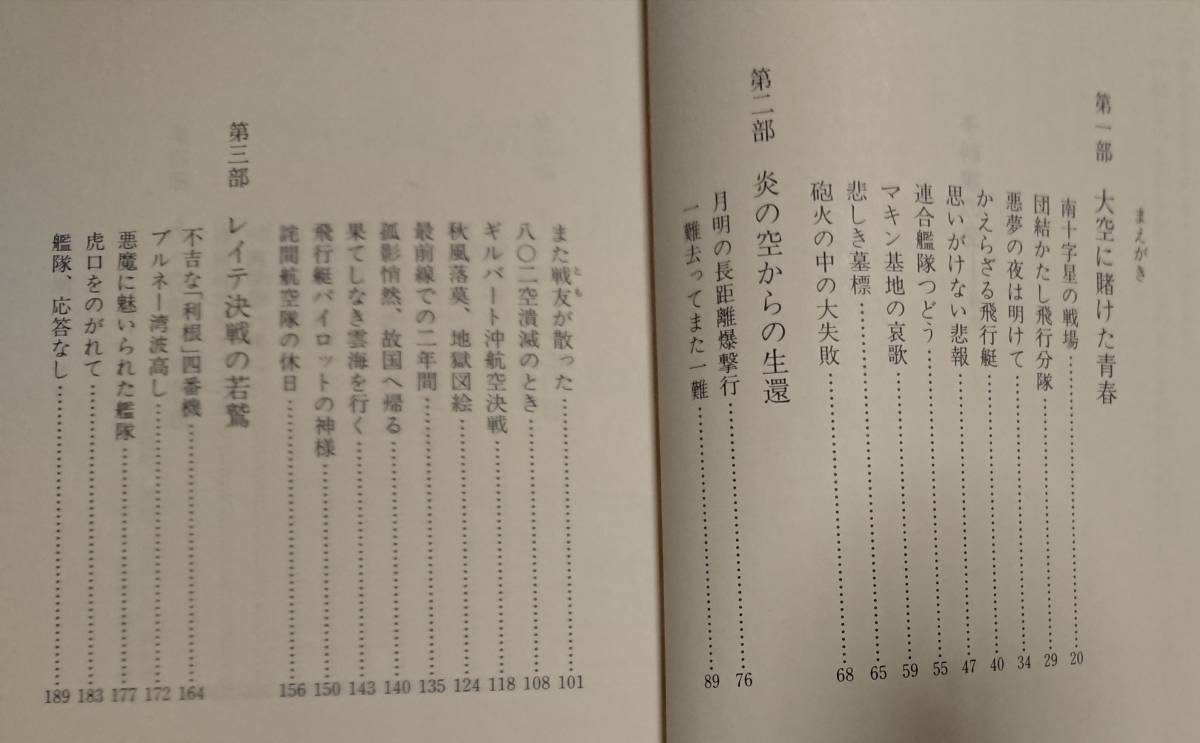 まえがき
第一部 大空に賭けた青春
南十字星の戦場………20
団結かたし飛行分隊………29
悪夢の夜は明けて………34
かえらざる飛行艇………40
思いがけない悲報………47
連合艦隊つどう………55
マキン基地の哀歌………59
悲しき墓標………65
砲火の中の大失敗………68
第二部 炎の空からの生還
月明の長距離爆撃行………76
一難去ってまた一難………89
また戦友が散った………101
とも
八〇二空潰滅のとき………108
ギルバート沖航空決戦………118
秋風落莫、地獄図絵………124
最前線での二年間………135
孤影悄然、故国へ帰る………140
果てしなき雲海を行く………143
飛行艇パイロットの神様………150
詫間航空隊の休日………156
第三部 レイテ決戦の若鷲
不吉な「利根」四番機………164
ブルネー湾波高し………172
悪魔に魅いられた艦隊………177
虎口をのがれて………183
艦隊、応答なし………189